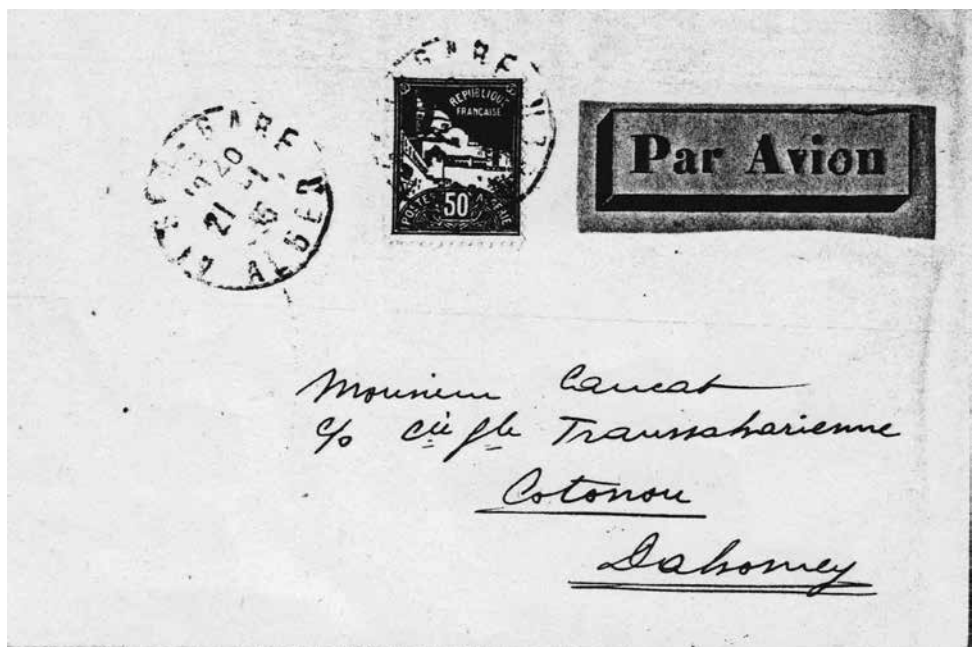 GARE
20
21
ALGER
GARE
REPUBLIQUE
FRANCAISE
POSTES ALGERIE
50
Par Avion
Monsieur Caucat
c/o Cie Gle Transsaharienne
Cotonou
Dahomey